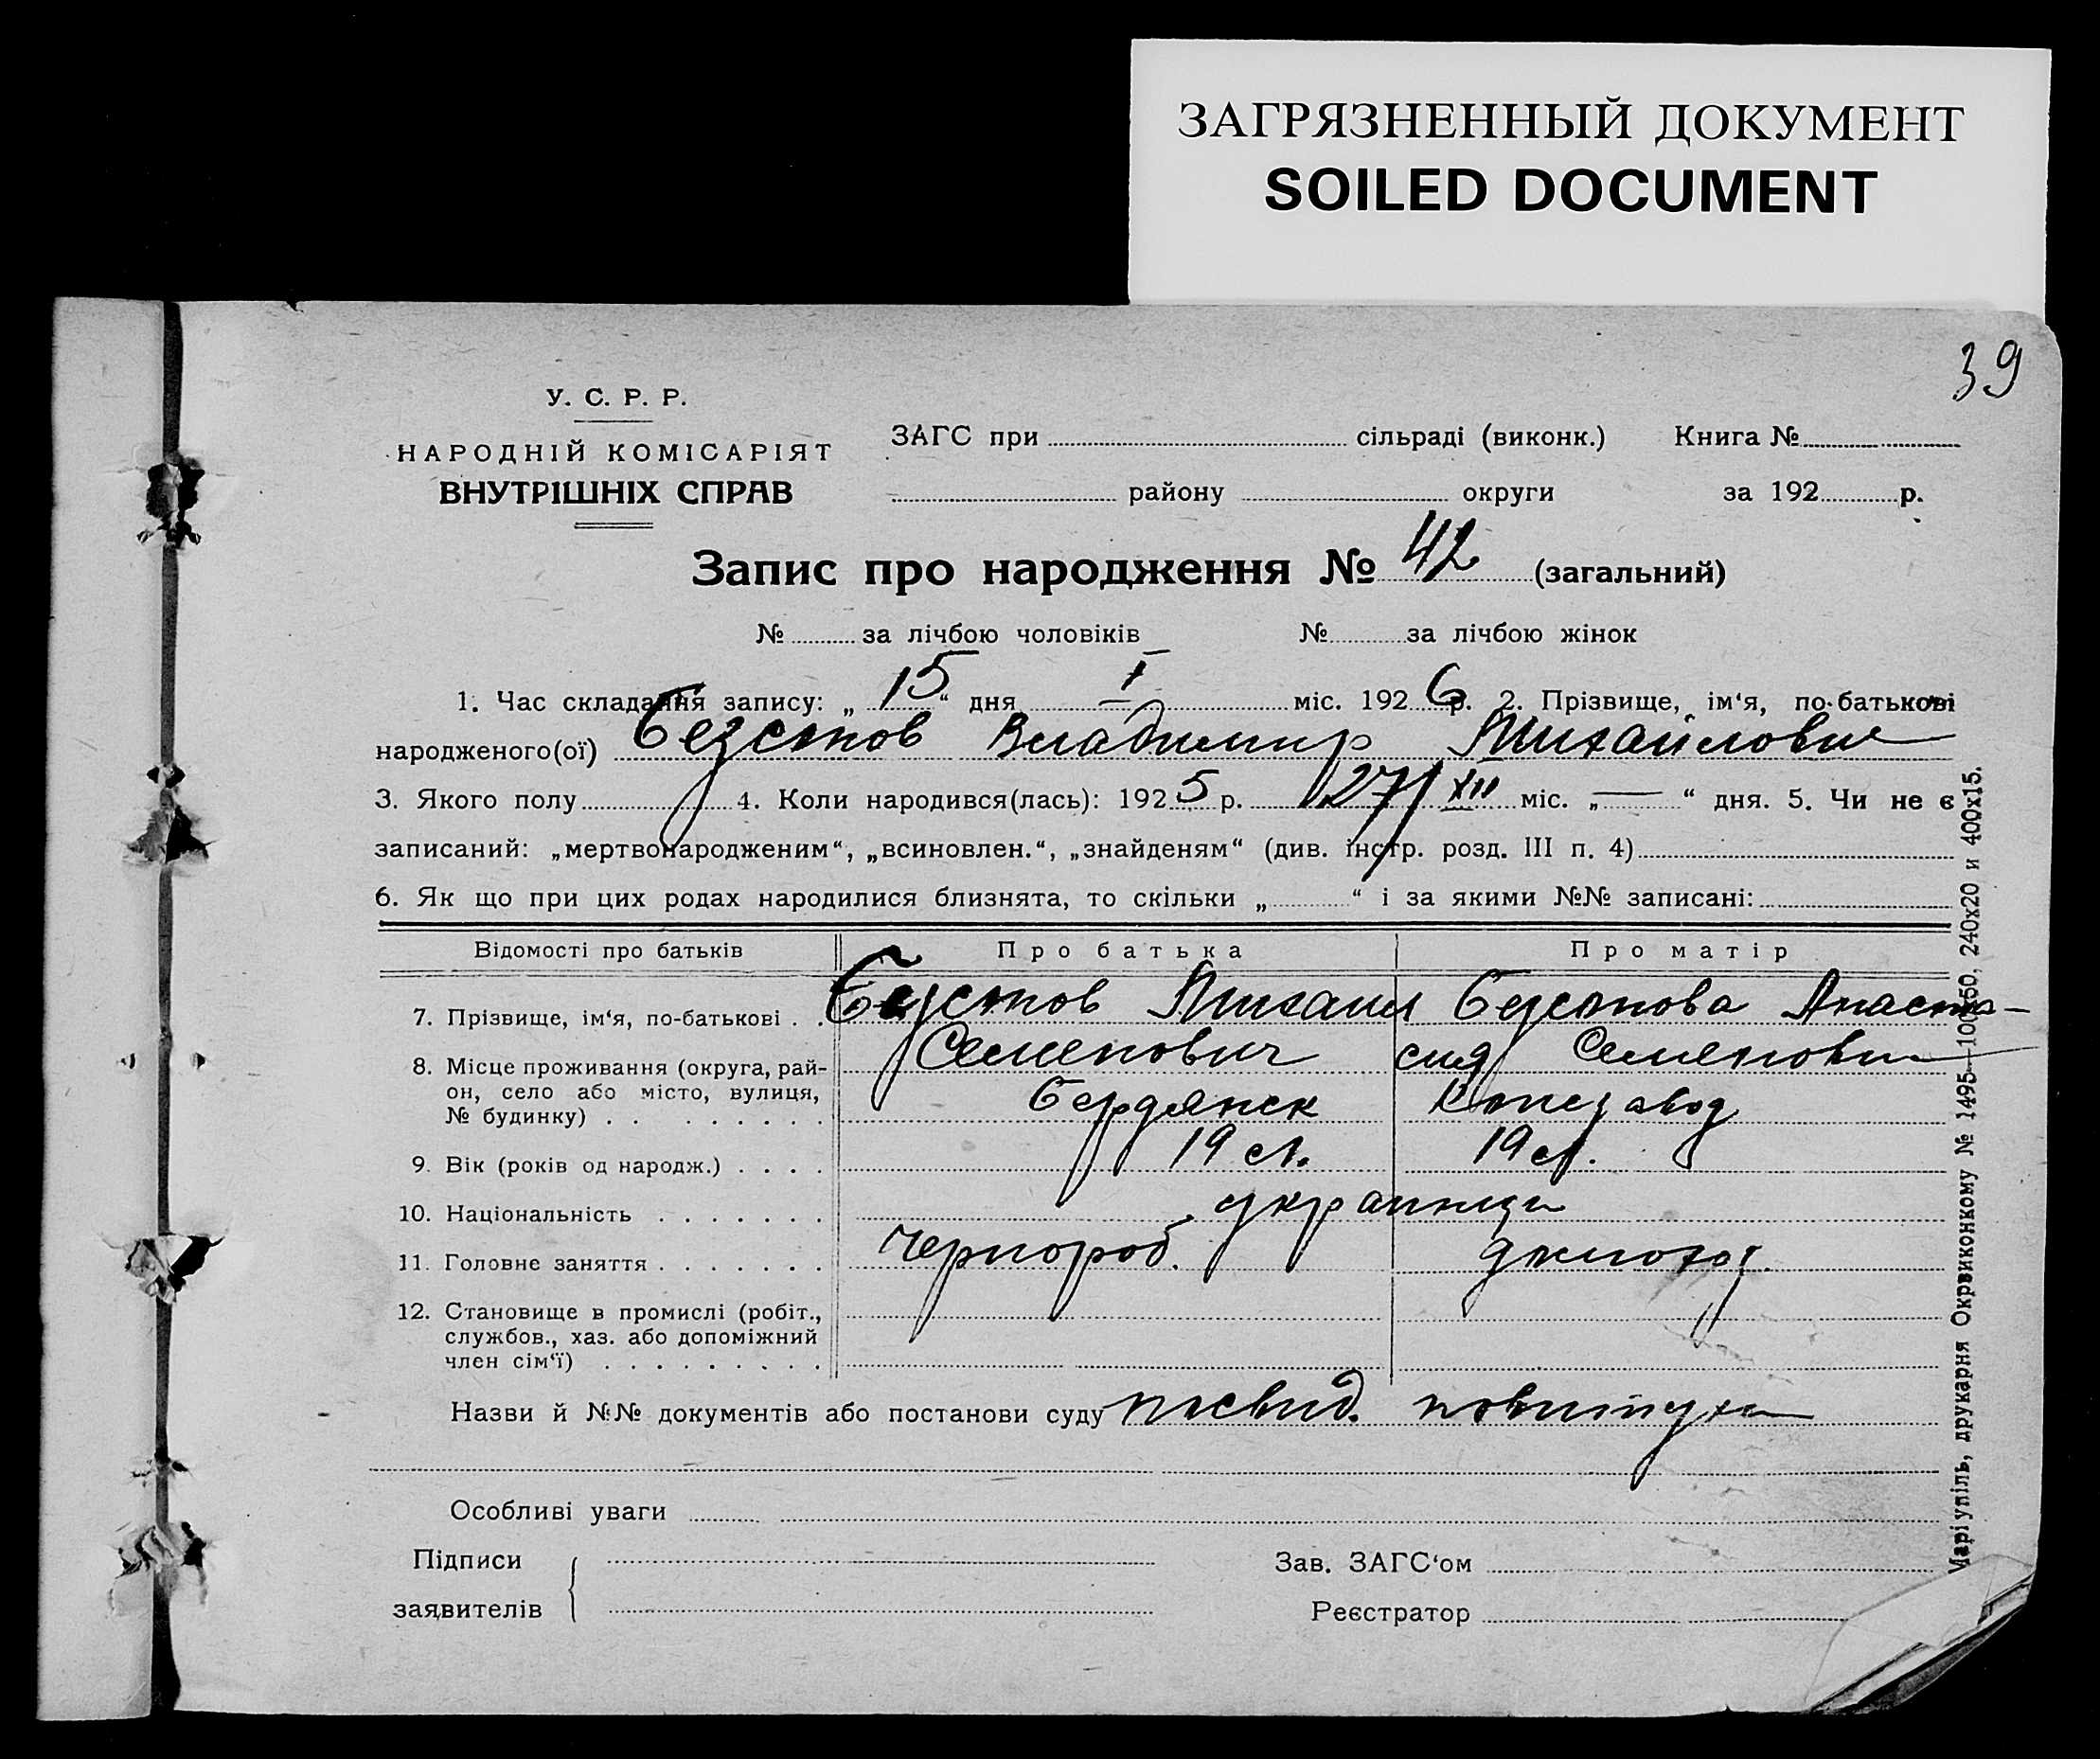 ЗАГРЯЗНЕННЫЙ ДОКУМЕНТ
SOILED DOCUMENT
39
У. С. Р. Р.
НАРОДНІЙ КОМІСАРІЯТ
ВНУТРІШНІХ СПРАВ
ЗАГС при сільраді (виконк.) Книга №
району округи за 192 р.
Запис про народження № 42 (загальний)
№ за лічбою чоловіків № за лічбою жінок
1. Час складання запису: „ 15 “ дня I міс. 192 6 р. 2. Прізвище, ім‘я, по-батькові
народженого(ої) Безсонов Владимир Михайлович
3. Якого полу 4. Коли народився(лась): 192 5 р. 27/XII міс. „ — “ дня. 5. Чи не є
записаний: „мертвонародженим“, „всиновлен.“, „знайденям“ (див. інстр. розд. III п. 4)
6. Як що при цих родах народилися близнята, то скільки „ “ і за якими №№ записані:
Відомості про батьків Про батька Про матір
7. Прізвище, ім‘я, по-батькові . . Безсонов Михаил Безсонова Анаста-
Семенович сия Семенови
8. Місце проживання (округа, рай-
он, село або місто, вулиця,
№ будинку) . . Бердянск
9. Вік (років од народж.) . . . . 19 л. 19 л.
10. Національність украинци
11. Головне заняття Чернороб. домохоз.
12. Становище в промислі (робіт.,
службов., хаз. або допоміжний
член сім‘ї)
Назви й №№ документів або постанови суду посвид. повитухи
Особливі уваги
Підписи
заявителів
Зав. ЗАГС‘ом
Реєстратор
Маріупіль, друкарня Окрвиконкому № 1495—100х50, 240х20 и 400х15.